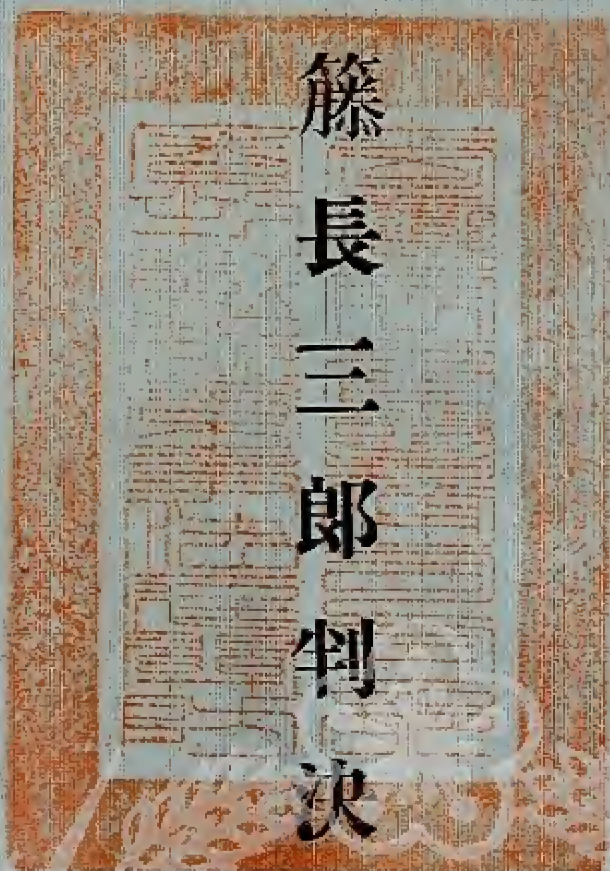 籐長三郎判決